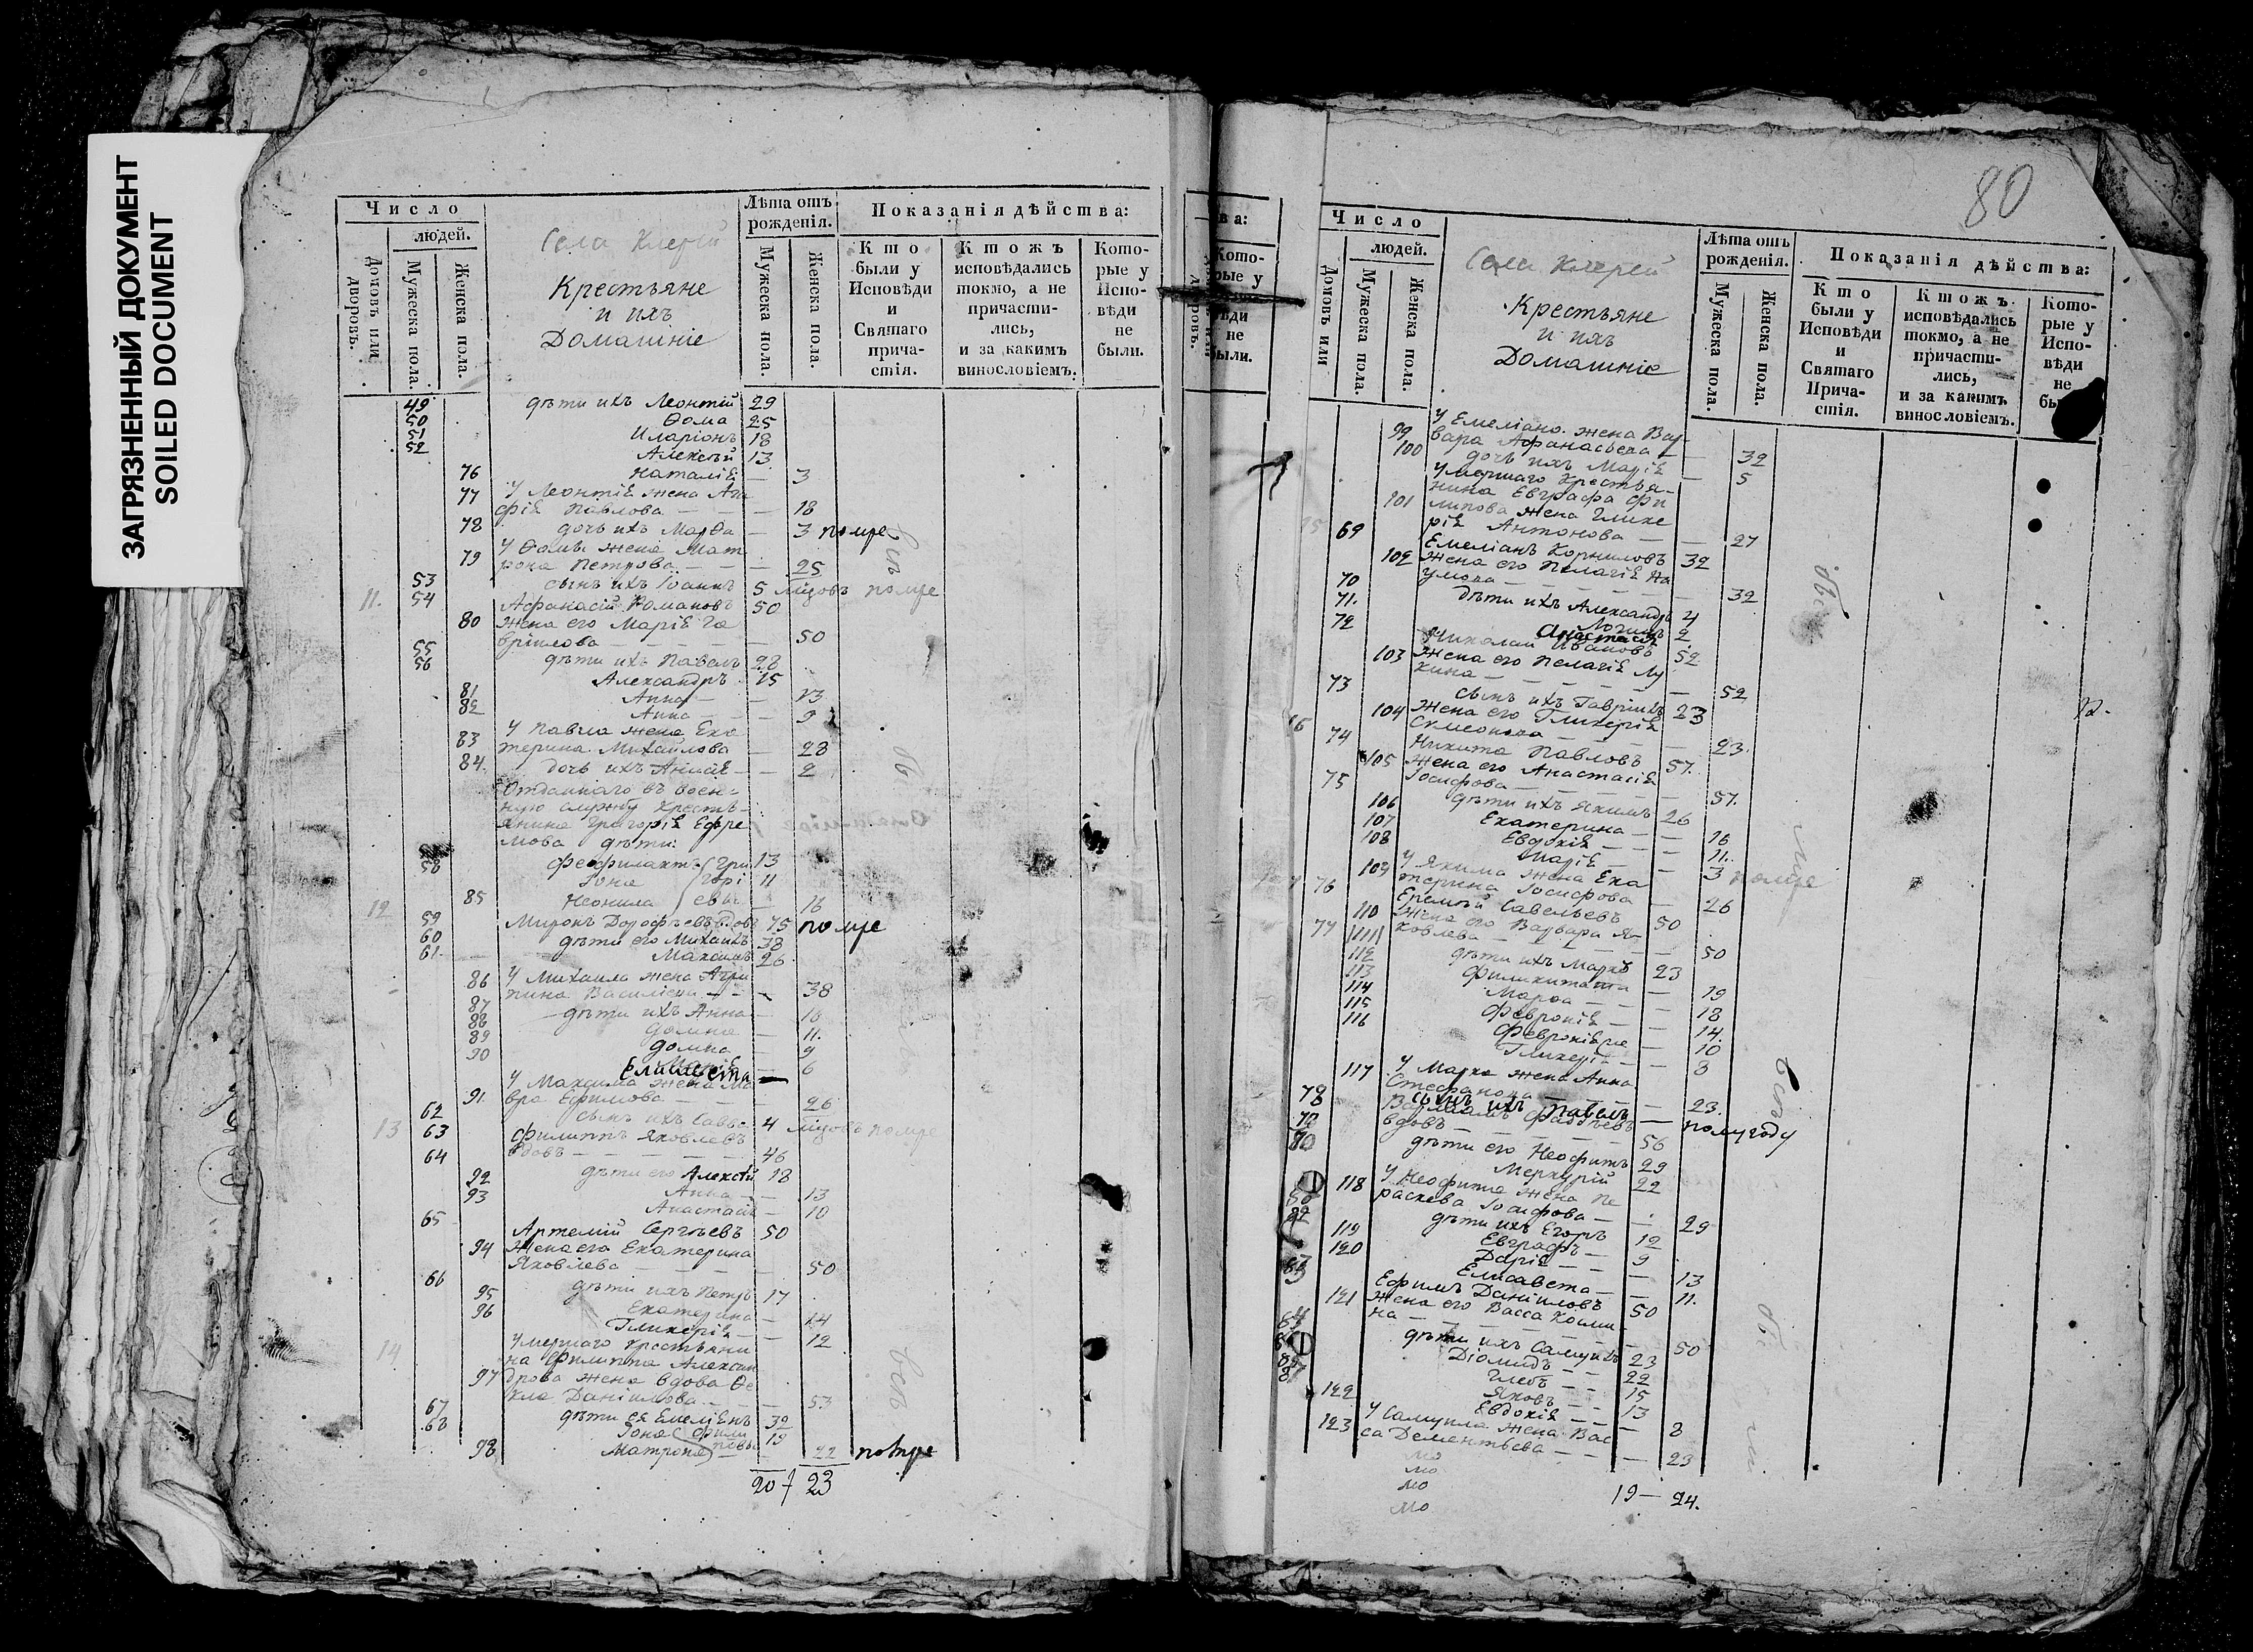 ЗАГРЯЗНЕННЫЙ ДОКУМЕНТ
SOILED DOCUMENT
Число
людей.
Домовъ или дворовъ.
Мужеска пола.
Женска пола.
Села Клерей
Крестьяне
и ихъ
Домашніе
Лѣта отъ рожденія.
Мужеска пола.
Женска пола.
Показанія дѣйства:
Кто были у Исповѣди и Святаго причастія.
Ктожъ исповѣдались токмо, а не причастились, и за какимъ винословіемъ.
Которые у Исповѣди не были.
49 дѣти ихъ Леонтій 29
50 Ѳома 25
51 Иларіонъ 18
52 Алексѣй 13
76 Наталія — 3
77 У Леонтія жена Ага
фія Павлова — — — 18
78 дочь ихъ Марѳа — 3 помре
У Ѳомы жена Мат
79 рона Петрова — — — 25
53 сынъ ихъ Іоаннъ 5 мѣцовъ помре
11. 54 Афанасій Романовъ 50
80 жена его Марія Га
вріилова — — — 50
55 дѣти ихъ Павелъ 28
56 Александръ 15
81 Анна — — 13
82 Анна — — 9
У Павла жена Ека
83 терина Михайлова — 28
84 дочь ихъ — — 2
Отданнаго въ воен-
ную службу крестья-
янина Григорія Ефре
мова дѣти:
Феофилактъ (Гри 13
58 Іона (горі 11
85 Неонила 16
12 59 Миронъ Дорофѣевъ вдовъ 75 помре
60 дѣти его Михаилъ 38
61. Максимъ 26
86 У Михаила жена Агри
пина Василіева — — 38
87 дѣти ихъ Анна — 16
88 Домна — 11.
89 Домна — 9
90 Марія — 6
Елисавета —
У Максима жена Ма
91. вра Ефимова — — — 26
62 сынъ ихъ Савва 4 мѣцовъ помре
13 63 Филиппъ Яковлевъ
вдовъ — — — — 46
64 дѣти его Алексѣй 18
92 Анна — — 13
93 Анастасія — 10
65 Артемій Сергѣевъ 50
94 Жена его Екатерина
Яковлева — — — 50
66 дѣти ихъ Петръ 17
95 Екатерина — 14
96 Гликерія — — 12
14 Умершаго крестьяни
на Филиппа Алексан
97 дрова жена вдова Ѳе
кла Даніилова — — 53
67 дѣти ея Емеліянъ 32
68 Іона (Фили 19
98 Матрона (повы 22 помре
20 — 23
80
Число
людей.
Домовъ или
Мужеска пола.
Женска пола.
Села Клерей
Крестьяне
и ихъ
Домашніе
Лѣта отъ рожденія.
Мужеска пола.
Женска пола.
Показанія дѣйства:
Кто были у Исповѣди и Святаго Причастія.
Ктожъ исповѣдались токмо, а не причастились, и за какимъ винословіемъ.
Которые у Исповѣди не
У Емеліяно. жена Вар-
99 вара Афанасьева — — 32
100 дочь ихъ Марія — 5
Умершаго крестья-
нина Евграфа Фи
101 липова жена Глике
рія Антонова — — 27
15 69 Емеліанъ Корниловъ 32
102 жена его Пелагія На
умова — — — 32
70 дѣти ихъ Александръ 4
71. 2
Анастасія
72 Николай Ивановъ 52
103 Жена его Пелагія Лу
кина — — — 52
73 сынъ ихъ Гавріилъ 23
104 Жена его Гликерія
Симеонова — — 23.
16 74 Никита Павловъ 57.
105 жена его Анастасія
Іосифова — — — 57.
75 дѣти ихъ Якимъ 26
106 Екатерина — — 16
107 Евдокія — — 11.
108 Марія — — 3 помре
109 У Якима жена Ека
терина Іосифова — 26
76 Еремѣй Савельевъ 50
110 жена его Варвара Я-
ковлева — — — 50
77 111 дѣти ихъ Марко 23
112 Филикитата — 19
113 Марѳа — — 18
114 Февронія — — 14.
115 Февронія — 10
116 Гликерія — — 8
117 У Марка жена Анна
Стефанова — — 23.
сынъ ихъ Павелъ — полугоду
78 Варлаамъ Фаддѣевъ
вдовъ — — — 56
79 дѣти его Неофитъ 29
80 Меркурій 22
118 У Неофита жена Пе
раскева Іосифова — 29
дѣти ихъ Егоръ 12
82 Евграфъ — 9
119 Дарія — — 13
120 Елисавета — — 11.
Ефимъ Даніиловъ 50
121 Жена его Васса Косми-
на — — — 50
84 дѣти ихъ Самуилъ 23
Діомидъ — — 22
Глебъ — — 15
Яковъ — — 13
122 Евдокія — — 8
123 У Самуила жена Вас
са Дементьева — — 23
19 — 24.